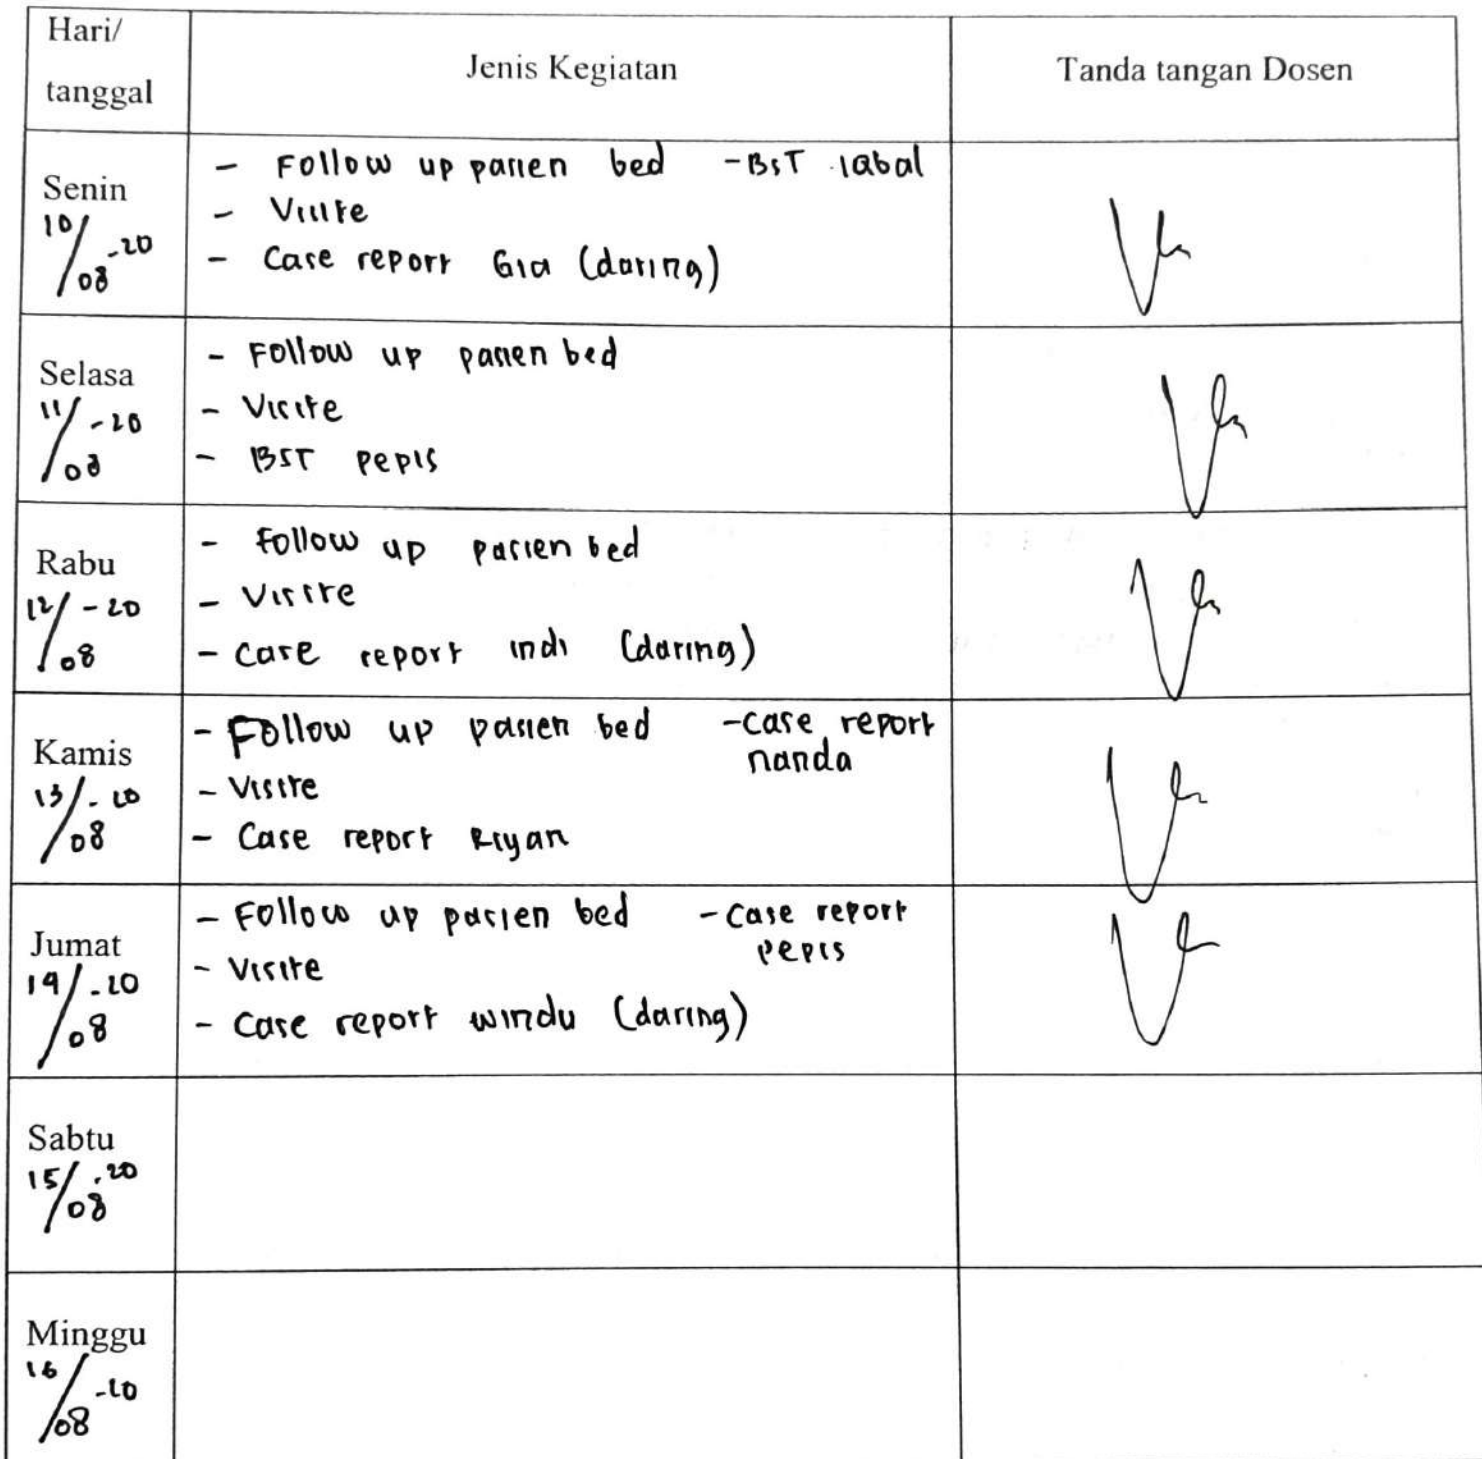 Hari/
tanggal
Jenis Kegiatan
Tanda tangan Dosen
Senin
10/08-20
- Follow up pasien bed - BST Iqbal
- Visite
- Case report Gia (daring)
Selasa
11/08-20
- Follow up pasien bed
- Visite
- BST pepis
Rabu
12/08-20
- Follow up pasien bed
- Visite
- Case report indi (daring)
Kamis
13/08-20
- Follow up pasien bed - Case report
nanda
- Visite
- Case report Riyan
Jumat
14/08-20
- Follow up pasien bed - Case report
pepis
- Visite
- Case report windu (daring)
Sabtu
15/08-20
Minggu
16/08-20